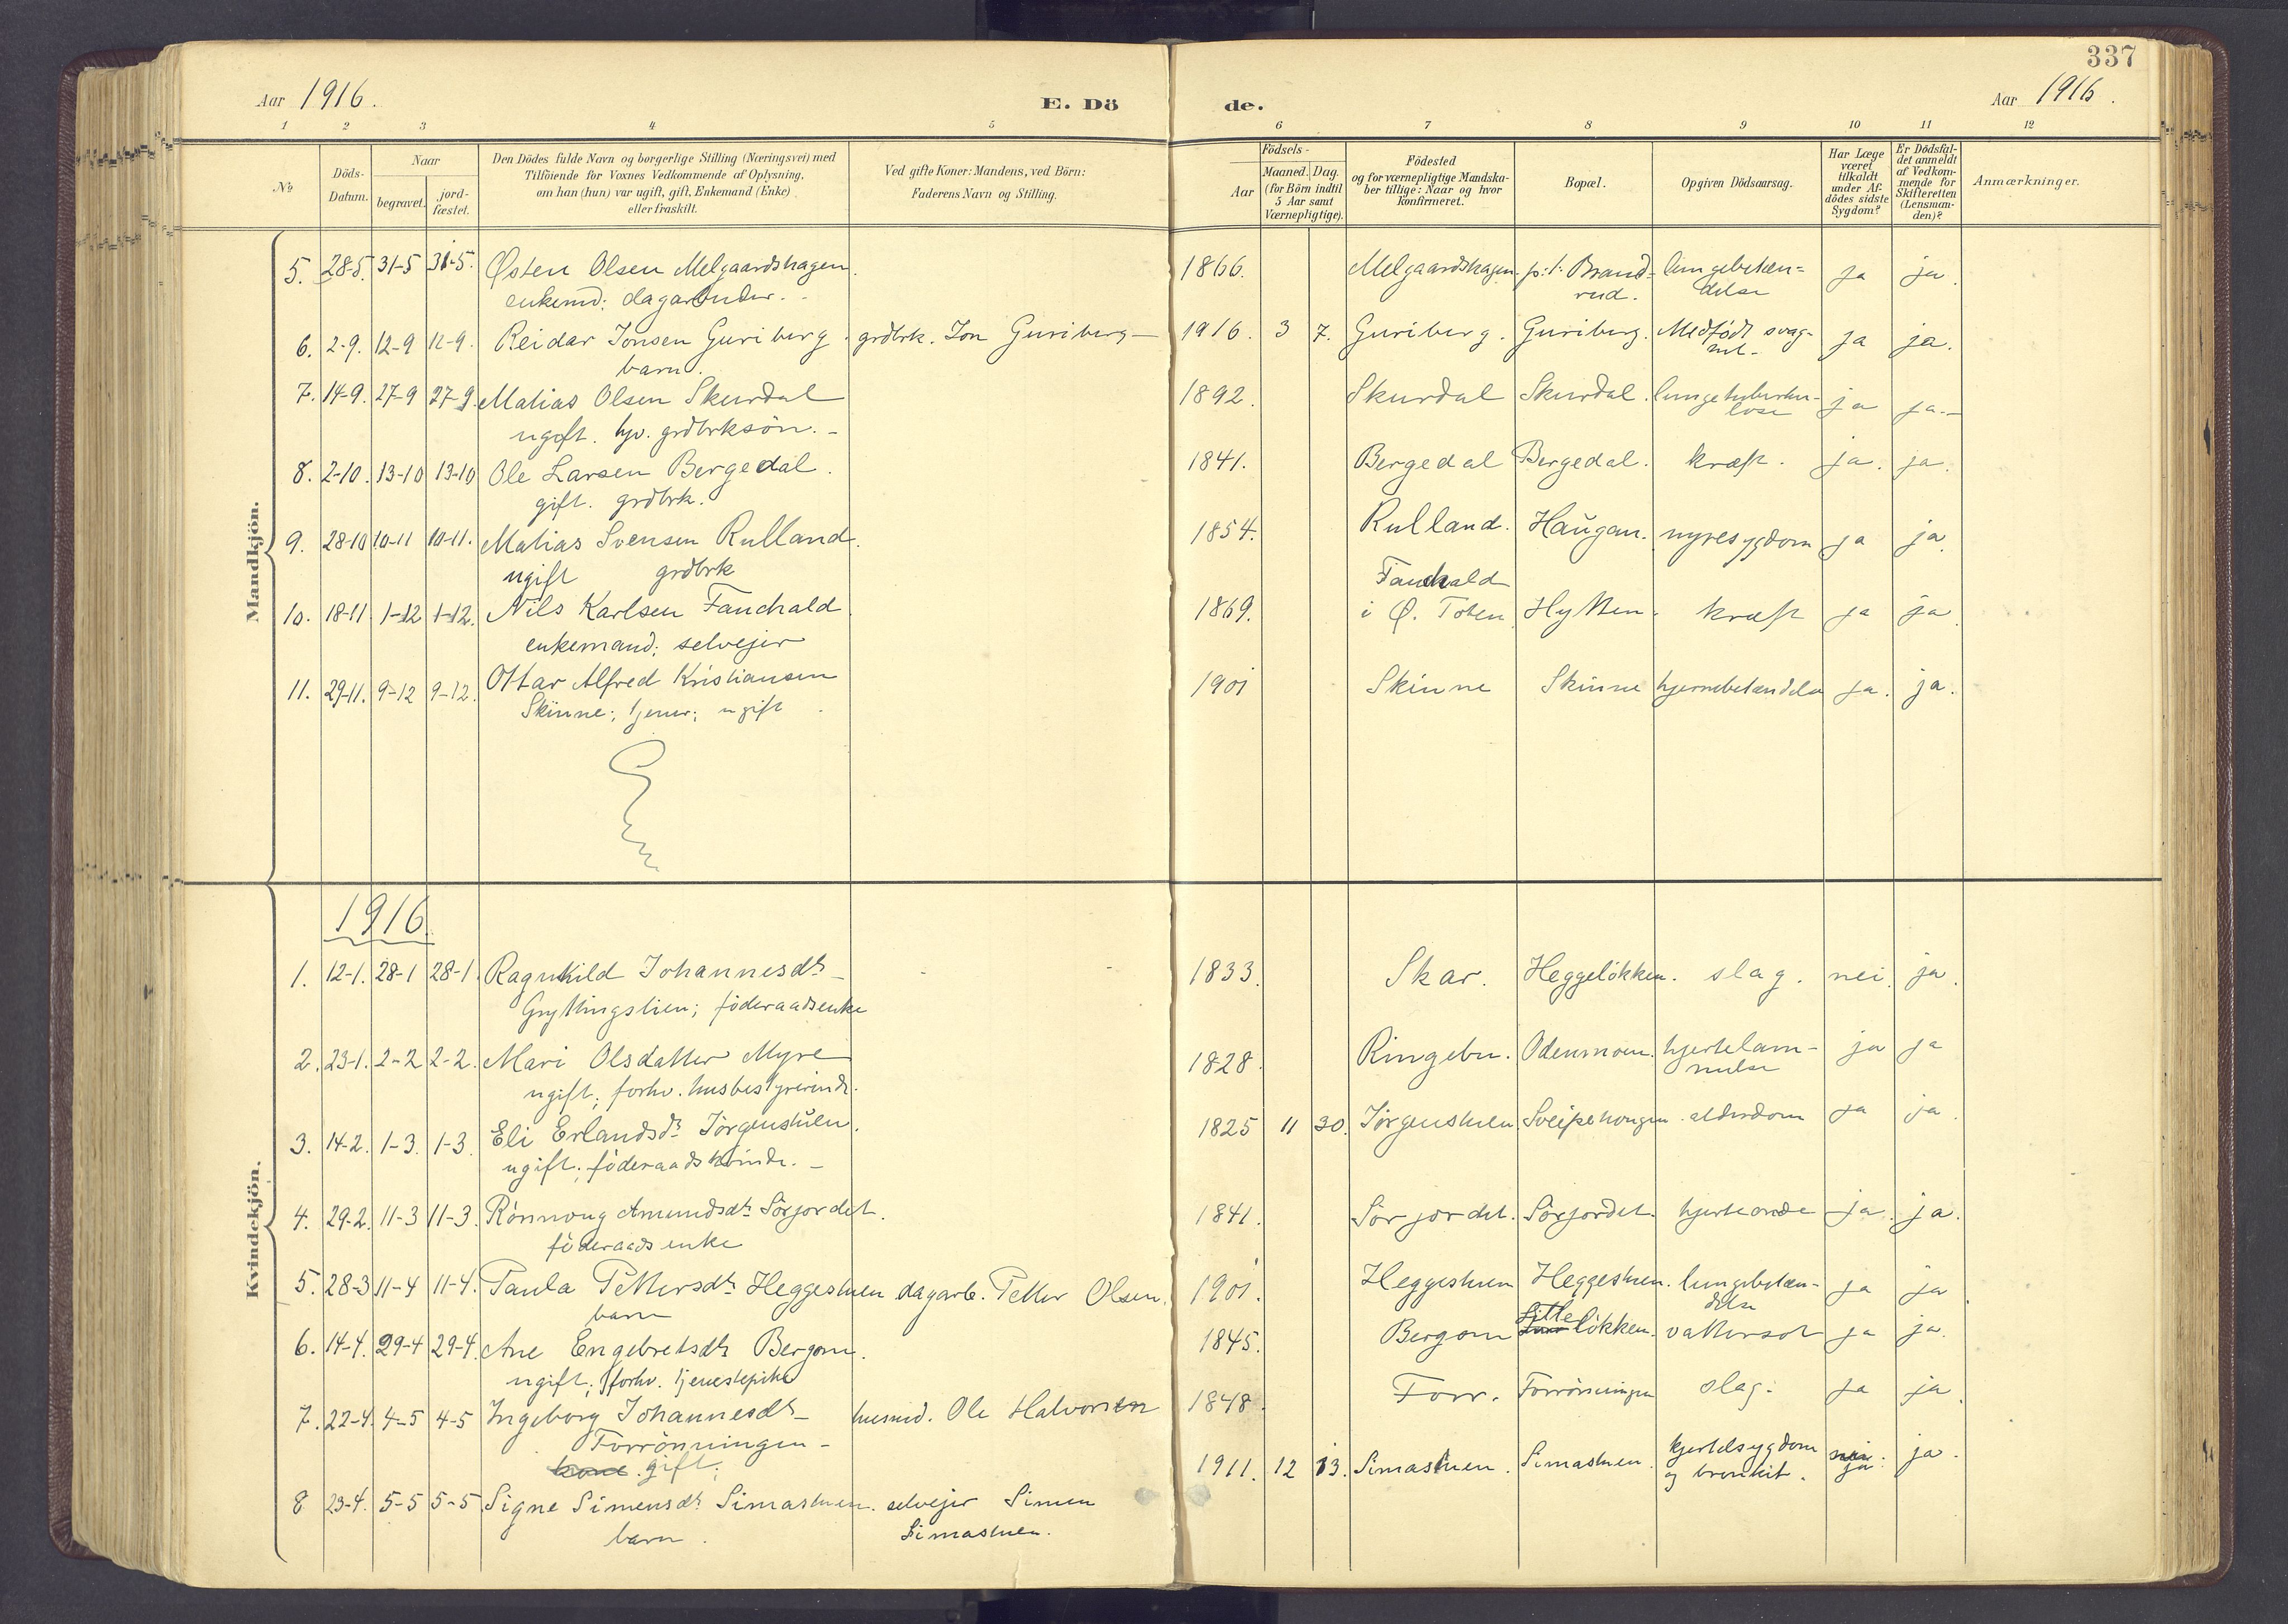 337
Aar 1916.
E. Dö
de.
Aar 1916.
1 2 3 4 5 6 7 8 9 10 11 12
№
Döds-
Datum.
Naar
begravet.
jord-
fæstet.
Den Dödes fulde Navn og borgerlige Stilling (Næringsvei) med
Tilföiende for Voxnes Vedkommende af Oplysning,
om han (hun) var ugift, gift, Enkemand (Enke)
eller fraskilt.
Ved gifte Koner: Mandens, ved Börn:
Faderens Navn og Stilling.
Födsels-
Aar
Maaned. Dag.
(for Börn indtil
5 Aar samt
Værnepligtige).
Födested
og for værnepligtige Mandska-
ber tillige: Naar og hvor
konfirmeret.
Bopæl.
Opgiven Dödsaarsag.
Har Læge
været
tilkaldt
under Af-
dödes sidste
Sygdom?
Er Dödsfal-
det anmeldt
af Vedkom-
mende for
Skifteretten
(Lensman-
den)?
Anmærkninger.
Mandkjön.
5. 28-5. 31-5 31-5. Østen Olsen Melgaardshagen. 1866. Melgaardshagen. p.t. Brand- lungebetæn- ja ja.
enkemd: dagarbeider. rud. delse
6. 2-9. 12-9 12-9. Reidar Jonsen Guriberg. grdbrk. Jon Guriberg 1916. 3 7. Guriberg. Guriberg. Medfødt svag- ja ja.
barn. het.
7. 14-9. 27-9 27-9. Matias Olsen Skurdal 1892. Skurdal Skurdal. lungetuberku- ja ja.
ugift. hjv. grdbrksön. lose
8. 2-10. 13-10 13-10 Ole Larsen Bergedal. 1841. Bergedal Bergedal. kræft. ja. ja.
gift. grdbrk.
9. 28-10 10-11 10-11. Matias Svensen Rulland. 1854. Rulland. Haugan. nyresygdom ja ja.
ugift grdbrk Fauchald
10. 18-11 1-12 1-12. Nils Karlsen Fauchald 1869. i Ø. Toten Hytten. kræft ja ja.
enkemand; selvejer
11. 29-11. 9-12 9-12. Ottar Alfred Kristiansen 1901 Skinne Skinne hjernebetændelse ja. ja.
Skinne; tjener; ugift
Kvindekjön.
1916
1. 12-1. 28-1 28-1. Ragnhild Johannesdtr 1833. Skar. Heggelökken. slag. nei. ja.
Gryttingslien; föderaadsenke
2. 23-1. 2-2 2-2. Mari Olsdatter Myre 1828. Ringebu. Odenmoen. hjertelam- ja ja
ugift; forhv. husbestyrerinde. melse
3. 14-2. 1-3. 1-3. Eli Erlandsdr Jörgenstuen. 1825 11 30. Jörgenstuen Sveipehougen alderdom ja ja.
ugift; föderaadskvinde.
4. 29-2. 11-3 11-3. Rönnoug Amundsdtr Sörjordet. 1841. Sörjordet. Sörjordet. hjerteonde ja. ja.
föderaads enke
5. 28-3 11-4 11-4. Paula Pettersdtr Heggestuen dagarb. Petter Olsen. 1901. Heggestuen Heggestuen. lungebetæn- ja ja
barn delse
6. 14-4. 29-4 29-4. Ane Engebretsdtr Bergom. 1845. Bergom Lille lökken. vattersot ja ja.
ugift; forhv. tjenestepike
7. 22-4. 4-5 4-5 Ingeborg Johannesdtr husmd. Ole Halvorsen 1848. Forr. Forrönningen slag. ja ja.
Forrönningen
kone gift;
8 23-4. 5-5 5-5 Signe Simensdtr Simastuen. selvejer Simen 1911. 12 13. Simastuen. Simastuen. kjertelsygdom nei ja. ja.
barn. Simastuen. og bronkit.